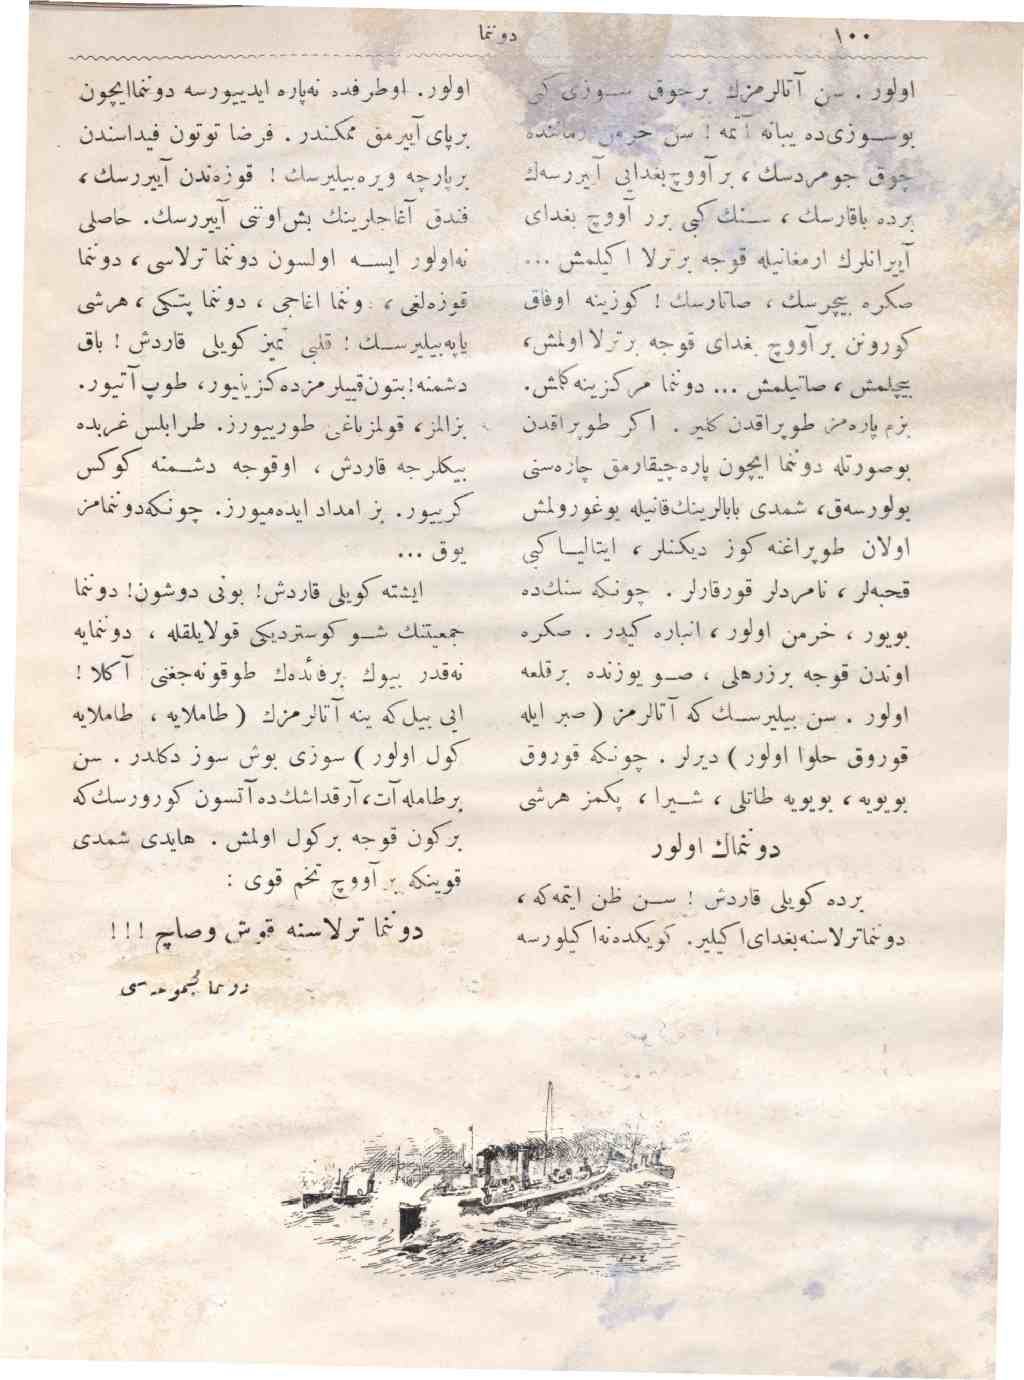 ١٠٠
دوننما
اولور . سن آتالرمزك برچوق سوزی كبی
بوسوزی‌ده یبانه آتمه ! سن خرمن زماننده
چوق جومردسك ، بر آووچ بغدایی آییررسه‌ك
برده باقارسك ، سنك كبی برر آووچ بغدای
آییرانلرك ارمغانیله قوجه برترلا اكیلمش ...
صكره بیچرسك ، صاتارسك ! كوزینه اوفاق
كورونن بر آووچ بغدای قوجه برترلا اولمش،
بیچلمش ، صاتیلمش ... دوننما مركزینه كلمش.
بزم پاره‌مز طوپراقدن كلیر . اكر طوپراقدن
بوصورتله دوننما ایچون پاره چیقارمق چاره‌سنی
بولورسه‌ق، شمدی بابالرینك قانیله یوغورولمش
اولان طوپراغنه كوز دیكنلر ، ایتالیا كبی
قحبه‌لر ، نامردلر قورقارلر . چونكه سنك‌ده
بویور ، خرمن اولور ، انباره كیدر . صكره
اوندن قوجه برزرهلی ، صو یوزنده برقلعه
اولور . سن بیلیرسك كه آتالرمز ( صبر ایله
قوروق حلوا اولور ) دیرلر . چونكه قوروق
بویویه ، بویویه طاتلی ، شیرا ، پكمز هرشی
دوننماك اولور
برده كویلی قاردش ! سن ظن ایتمه‌كه ،
دوننما ترلاسنه بغدای اكیلیر. كویكده نه اكیلورسه
اولور. اوطرفده نه‌پاره ایدییورسه دوننما ایچون
برپای آییرمق ممكندر . فرضا توتون فیداسندن
برپارچه ویره‌بیلیرسك ! قوزه‌ندن آییررسك ،
فندق آغاجلرینك بش اوننی آییررسك. حاصلی
نه‌اولور ایسه اولسون دوننما ترلاسی ، دوننما
قوزه‌لغی ، دوننما اغاجی ، دوننما پتكی ، هرشی
یاپه‌بیلیرسك ! قلبی تمیز كویلی قاردش ! باق
دشمنه! بتون قییلرمزده كزینیور، طوپ آتیور.
بزالمز، قولمزباغلی طورییورز. طرابلس غربده
بیكلرجه قاردش ، اوقوجه دشمنه كوكس
كرییور. بز امداد ایده‌میورز. چونكه دوننمامز
یوق ...
ایشته كویلی قاردش! بونی دوشون! دوننما
جمعیتنك شو كوستردیكی قولایلقله ، دوننمایه
نه‌قدر بیوك برفائده‌ك طوقونه‌جغنی آكلا !
ایی بیل كه ینه آتالرمزك ( طاملایه ، طاملایه
كول اولور ) سوزی بوش سوز دكلدر . سن
برطامله آت، آرقداشك‌ده آتسون كورورسك كه
بركون قوجه بركول اولمش . هایدی شمدی
قوینكه بر آووچ تخم قوی :
دوننما ترلاسنه قوش وصاچ ! ! !
دوننما مجموعه‌سی